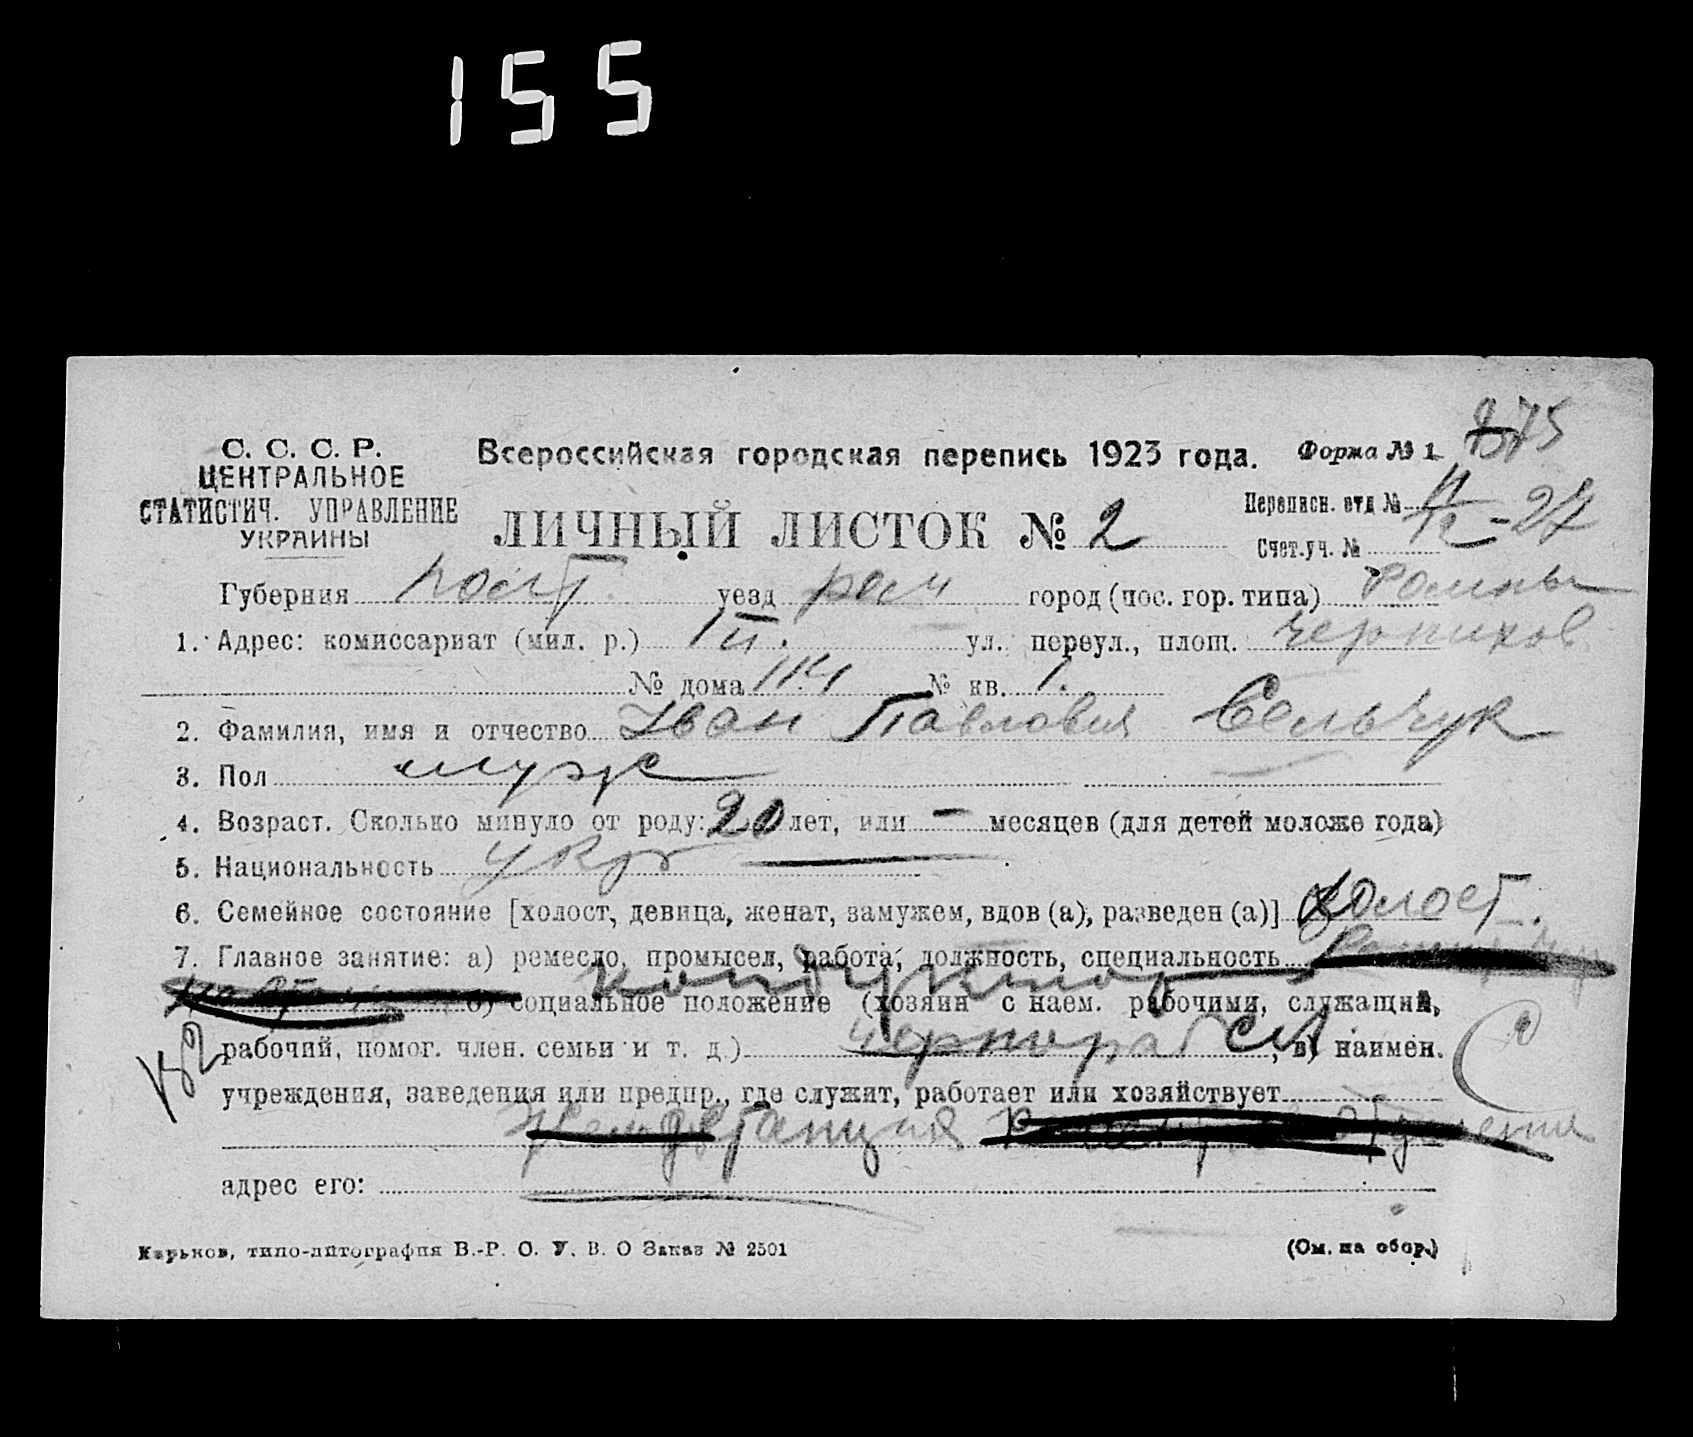 155
С. С. С. Р.
ЦЕНТРАЛЬНОЕ
СТАТИСТИЧ. УПРАВЛЕНИЕ
УКРАИНЫ
Всероссийская городская перепись 1923 года.
Форма № 1
ЛИЧНЫЙ ЛИСТОК № 2
Переписн. отд №
Счет.уч. № 27
Губерния Полт уезд ром город (пос. гор. типа) Ромны
1. Адрес: комиссариат (мил. р.) ул. переул., площ.
№ дома № кв. 1.
2. Фамилия, имя и отчество Иван Павлович Сельчук
3. Пол муж
4. Возраст. Сколько минуло от роду: 20 лет, или — месяцев (для детей моложе года)
5. Национальность укр
6. Семейное состояние [холост, девица, женат, замужем, вдов (а), разведен (а)] холост.
7. Главное занятие: а) ремесло, промысел, работа, должность, специальность
кондуктор
б) социальное положение (хозяин с наем. рабочими, служащий,
рабочий, помог. член. семьи и т. д.) чернораб сл, в) наимен.
учреждения, заведения или предпр., где служит, работает или хозяйствует
адрес его:
Харьков, типо-литография В.-Р. О. У. В. О Заказ № 2501
(См. на обор.)